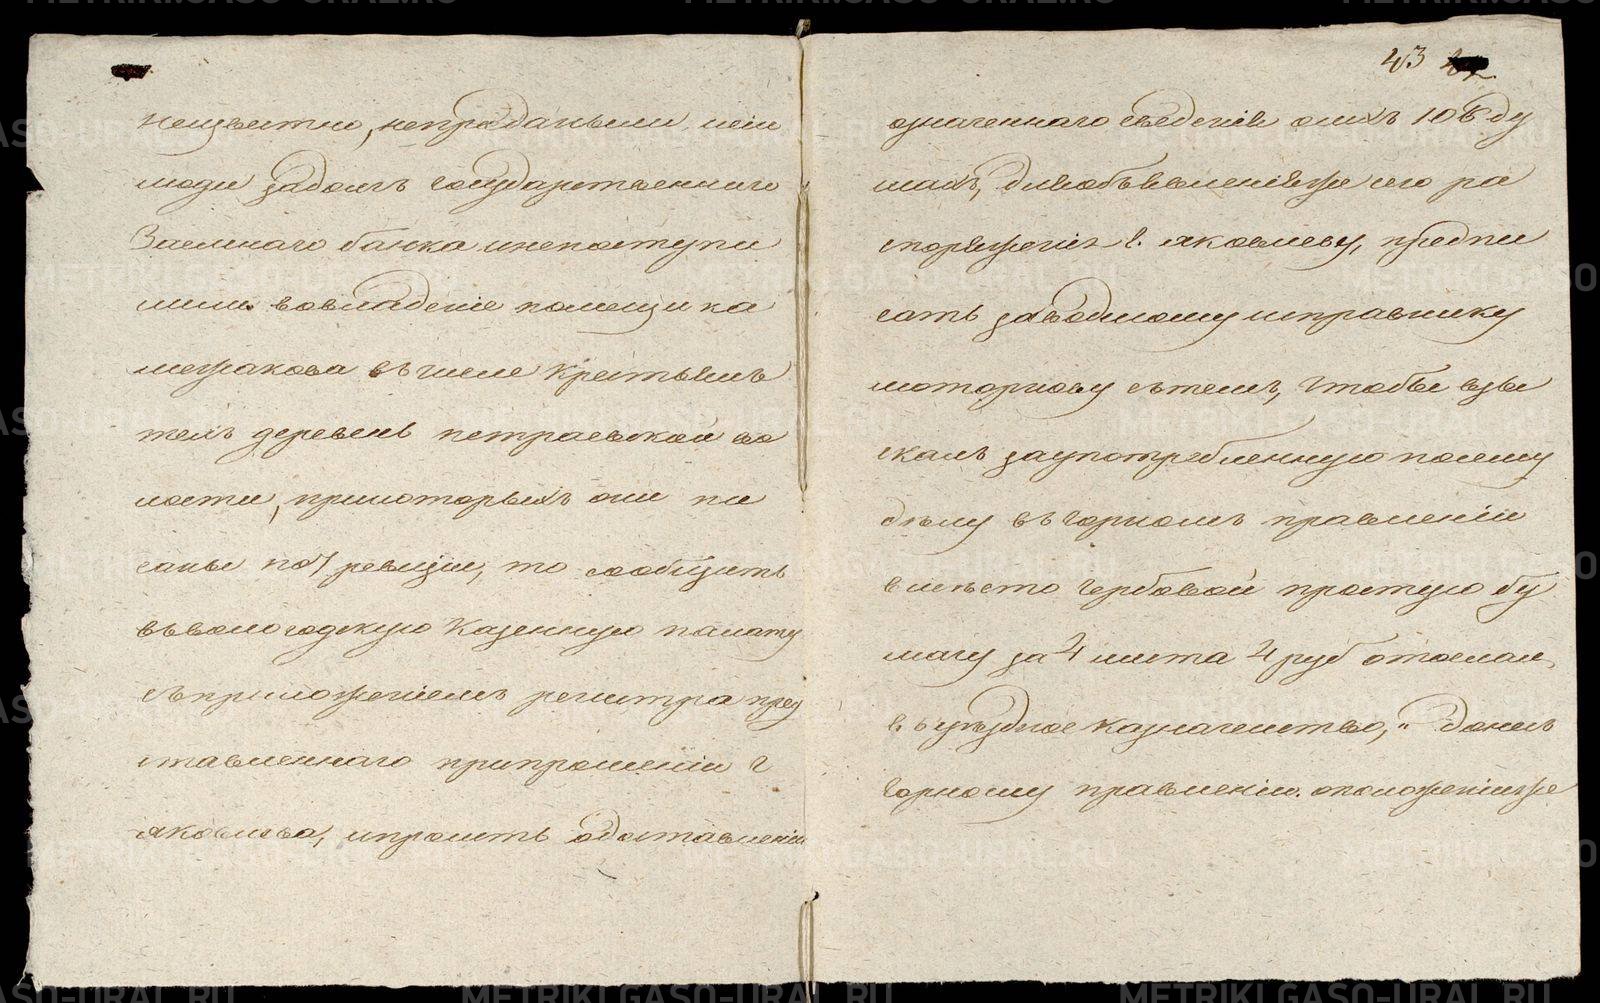 неизвестно, непроданыли, сеи
люди задолгъ государственнаго
Заемнаго банка инепоступи
лили вовладѣніе помещика
межакова въ числе крестьянъ
техъ деревень петраевской во
лости, прикоторыхъ они пи
саны по 7 ревизіи, то сообщить
въвологодскую Казенную палату
съприложеніемъ регистра пред
ставленнаго припрошеніи г
яковлева, ипросить одоставленіи
43
означеннаго сведенія онихъ 106 ду
шахъ, дляобъявленіяже сего ра
споряженія г. яковлеву, предпи
сать заводскому исправнику
моторному стемъ, чтобы взы
скалъ заупотребленную посему
делу въ горномъ правленіи
вместо гербовой простую бу
магу за 4 листа 4 руб отослал
въ уездное казначейство, и донесъ
Горному правленію. оположеніиже